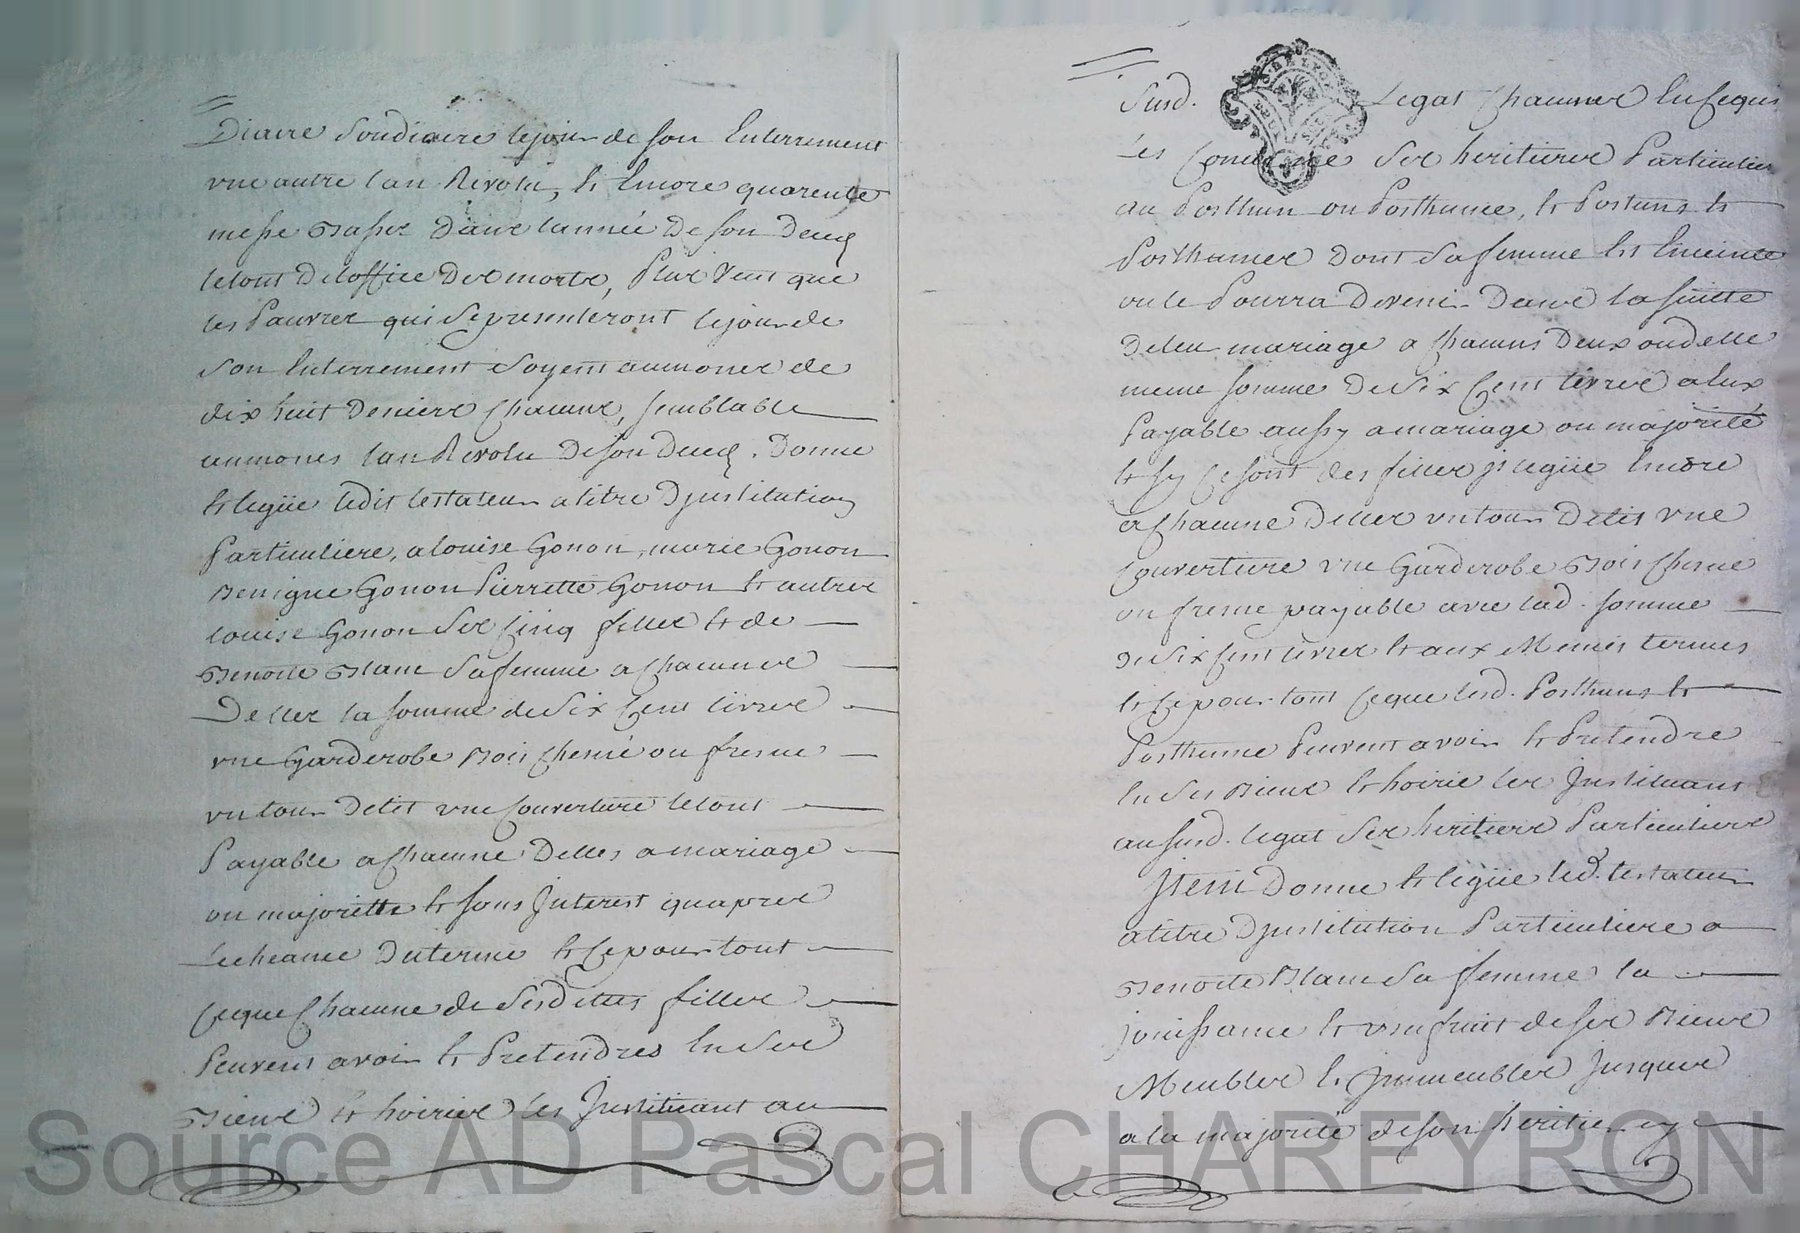 Diacre Soudiacre le jour de son Enterrement
vne autre lan Revolu, et Encore quarente
messe Basse dans lannée de son Deces
le tout de loffice des morts, Plus Veut que
les Pauvres qui se presenteront le jour de
son Enterrement soyent aumones de
dix huit deniers chacuns, semblable
aumones lan Revolu de son Deces. Donne
et legüe ledit testateur a titre Djnstitution
Particuliere, a louise Gonon, marie Gonon
Benigne Gonon Pierrette Gonon et autre
louise Gonon ses cinq filles et de
Benoite Blanc sa femme a chacunne
Delles la somme de six cens livres
vne Garderobe Bois chesne ou fresne
vn tour de lit vne Couverture le tout
Payable a chacune Delles a mariage
ou majoritte et sans Interest quapres
Lecheance du terme et ce pour tout
ce que chacune de sesdittes filles
Peuvent avoir et Pretendres En ses
Biens et hoiries les Instituant au
Susd. Legat chacunes En ce qui
Les Concerne ses heritieres Particulier
au Posthum ou Posthume, et Postums et
Posthumes dont sa femme est Enceinte
ou le Pourra devenir dans la suitte
de leur mariage a chacuns deux ou delle
meme somme de six cent livres a eux
Payable aussy a mariage ou majorité
et sy ce sont des filles jl legüe Encore
a chacune Delles vn tour de lit vne
Couverture vne Garderobe Bois chesne
ou fresne payable avec lad. somme
de six cens livres et aux Memes termes
et ce pour tout ce que lesd. Posthums et
Posthume Peuvent avoir et Pretendre
En ses Biens et hoirie les Instituant
au susd. legat ses heritiers Particuliers
Jtem Donne et legüe led. testateur
a titre Djnstitution Particuliere a
Benoite Blanc sa femme la
jouissance et vsufruit de ses Biens
Meubles et Jmmeubles jusques
a la majorité de son heritier cy
Source AD Pascal CHAREYRON